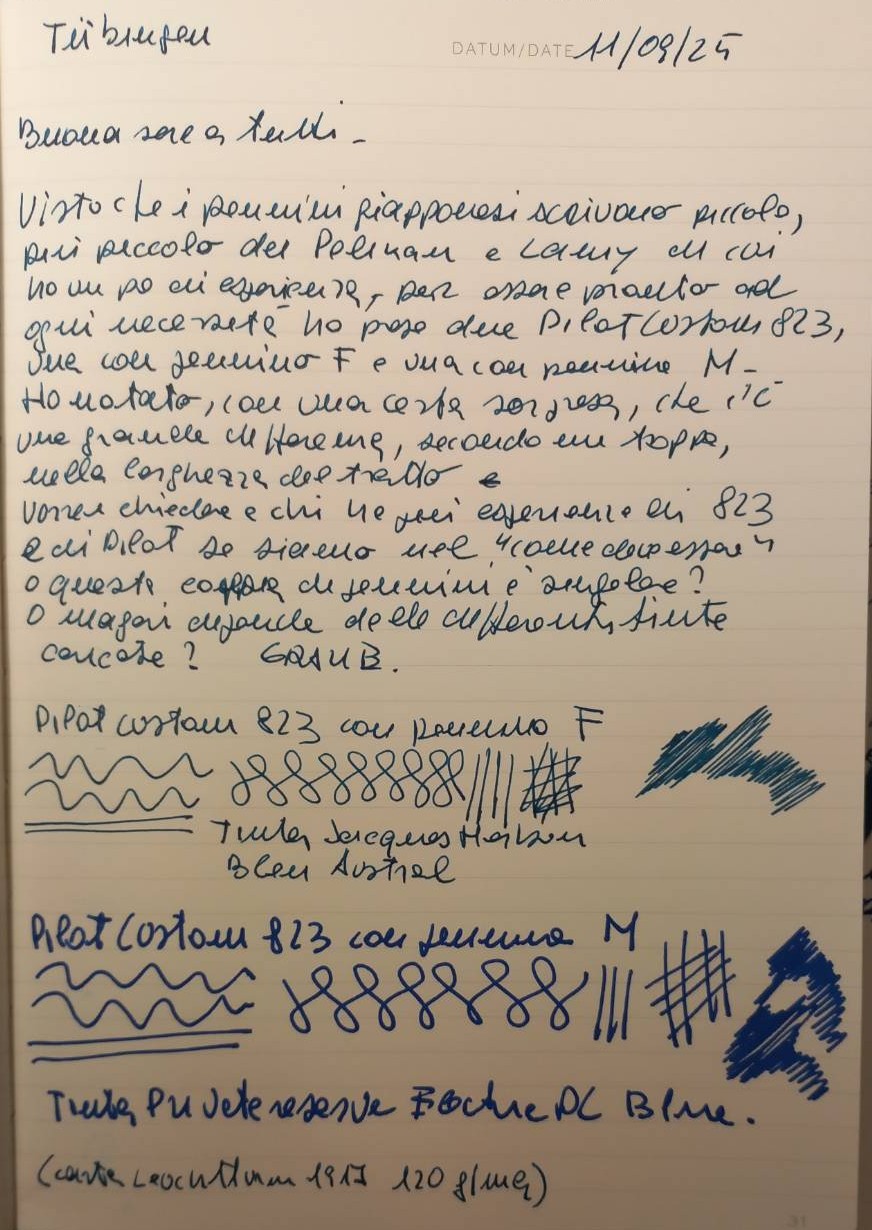 Tübingen
DATUM/DATE 11/09/25
Buona sera a tutti -
Visto che i pennini giapponesi scrivono piccolo,
più piccolo dei Pelikan e Lamy di cui
ho un po di esperienza, per essere pronto ad
ogni necessità ho preso due Pilot Custom 823,
una con pennino F e una con pennino M-
Ho notato, con una certa sorpresa, che c'è
una grande differenza, secondo me troppa,
nella larghezza del tratto e
vorrei chiedere a chi ha più esperienza di 823
e di Pilot se siamo nel "come deve essere"
o questa coppia di pennini è singolare?
O magari dipende delle differenti tinte
caricate? GRAUB.
Pilot Custom 823 con pennino F
Tinta Jacques Herbin
Bleu Austral
Pilot Custom 823 con pennino M
Tinta Private reserve Electric DC Blue.
(carta Leuchtturm 1917 120 g/mq)